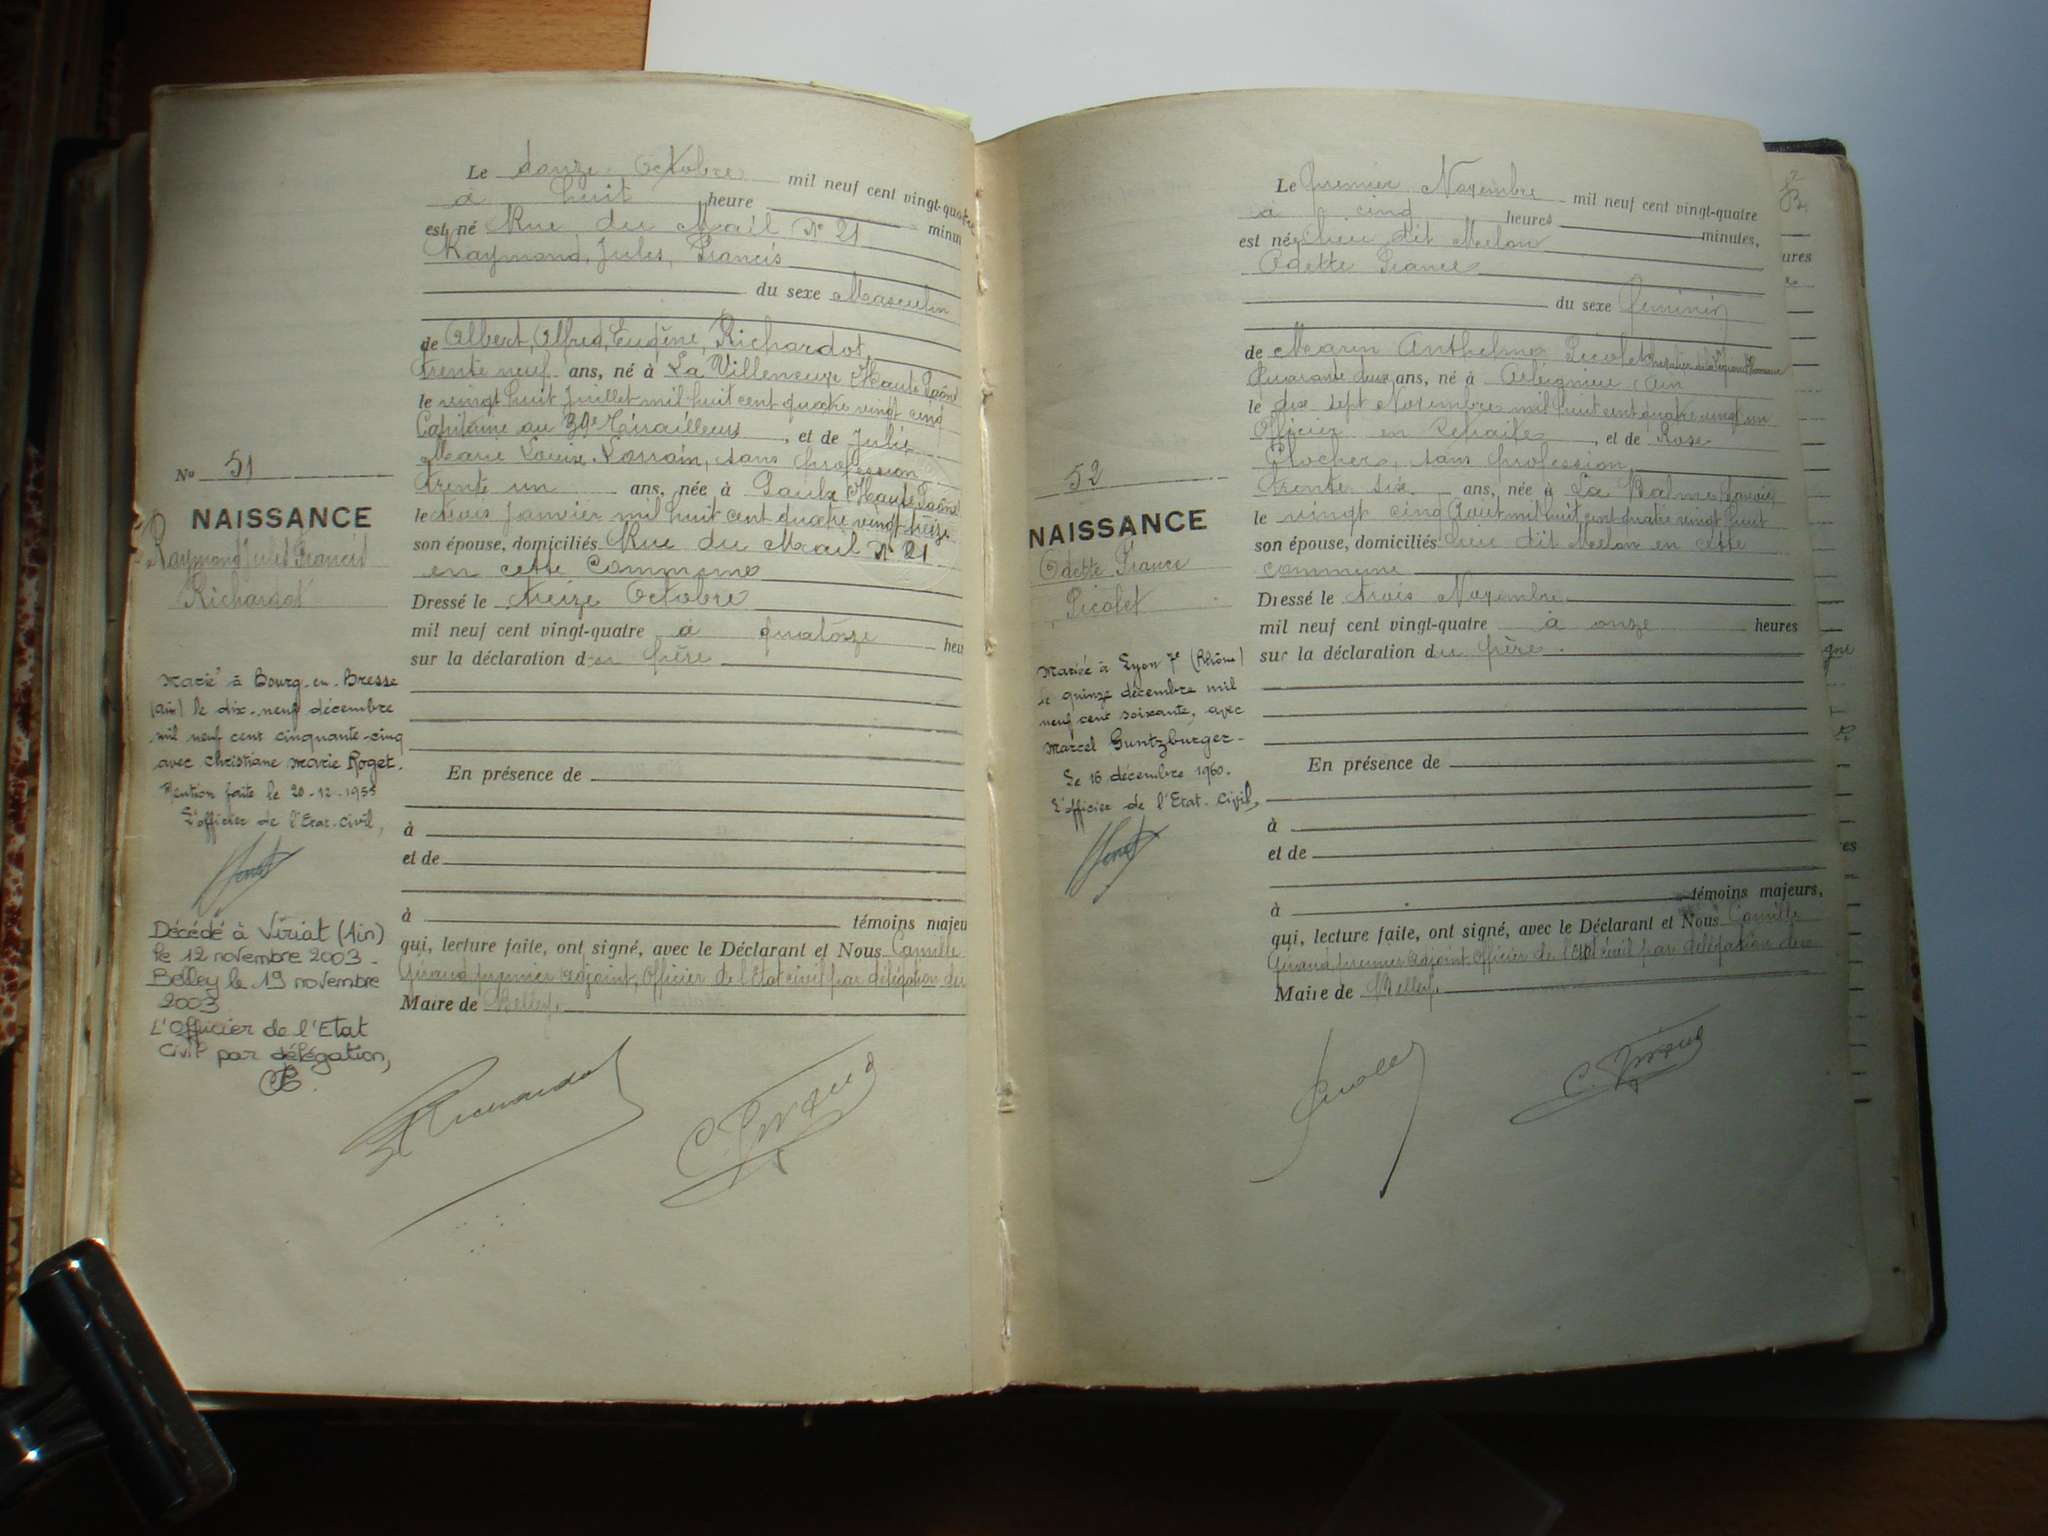 Le douze Octobre mil neuf cent vingt-quatre
à huit heure minu
est né Rue du Mail N° 21
Raymond, Jules, Francis
du sexe Masculin
de Albert, Alfred, Eugène, Richardot,
trente neuf ans, né à La Villeneuve Haute Saône
le vingt huit Juillet mil huit cent quatre vingt cinq
Capitaine au 39e Tirailleurs, et de Julie
Marie Louise Lorrain, sans profession
trente un ans, née à Saulx Haute Saône
le trois Janvier mil huit cent quatre vingt treize
son épouse, domiciliés Rue du Mail N° 21
en cette Commune
Dressé le treize Octobre
mil neuf cent vingt-quatre à quatorze heu
sur la déclaration du père
En présence de
à
et de
à témoins majeu
qui, lecture faite, ont signé, avec le Déclarant et Nous Camille
Giraud premier adjoint, Officier de l'Etat civil par délégation du
Maire de Belley.
Richardot
C. Giraud
N° 51
NAISSANCE
Raymond Jules Francis
Richardot
Marié à Bourg-en-Bresse
(Ain) le dix-neuf décembre
mil neuf cent cinquante-cinq
avec Christiane Marie Roget.
Mention faite le 20-12-1955
L'officier de l'Etat-civil,
Décédé à Viriat (Ain)
le 12 novembre 2003.
Belley le 19 novembre
2003
L'Officier de l'Etat
Civil par délégation,
Le premier Novembre mil neuf cent vingt-quatre
à cinq heures minutes,
est né lieu dit Melon
Odette France
du sexe féminin
de Marin Anthelme Picolet Chevalier de la Légion d'honneur
quarante deux ans, né à Arbignieu Ain
le dix sept Novembre mil huit cent quatre vingt un
Officier en retraite, et de Rose
sans profession,
trente six ans, née à La Balme Savoie
le vingt cinq Août mil huit cent quatre vingt huit
son épouse, domiciliés lieu dit Melon en cette
commune
Dressé le trois Novembre
mil neuf cent vingt-quatre à onze heures
sur la déclaration du père.
En présence de
à
et de
à témoins majeurs,
qui, lecture faite, ont signé, avec le Déclarant et Nous Camille
Giraud premier adjoint Officier de l'Etat civil par délégation du
Maire de Belley.
C. Giraud
52
NAISSANCE
Odette France
Picolet
Mariée à Lyon 7e (Rhône)
le quinze décembre mil
neuf cent soixante, avec
Marcel Guntzburger.
Le 16 décembre 1960.
L'officier de l'Etat-civil,